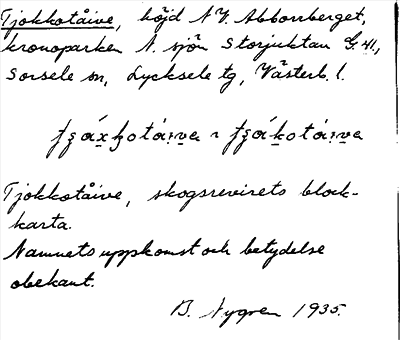 Tjokkotåive, höjd N.V. Abborrberget,
kronoparken N. sjön Storjuktan G. 41.,
Sorsele sn, Lycksele tg, Västerb. l.
Tjokkotåive, skogsrevirets block-
karta.
Namnets uppkomst och betydelse
obekant.
B. Nygren 1935.